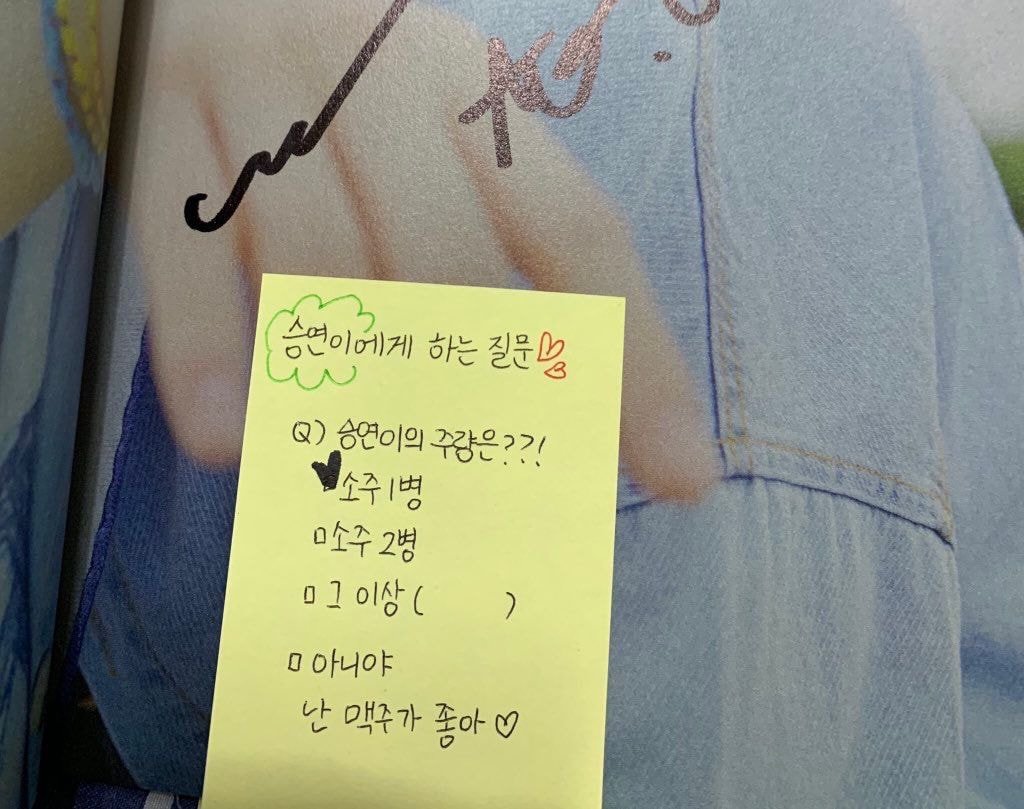 승연이에게 하는 질문
Q) 승연이의 주량은??!
소주 1병
소주 2병
그 이상 (        )
아니야
난 맥주가 좋아♡